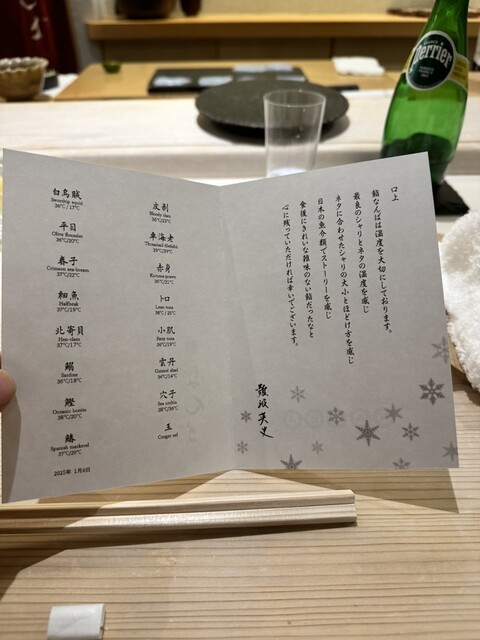 白烏賊
Swordtip squid
36℃/ 17℃
平目
Olive flounder
36℃/20℃
春子
Crimson sea-bream
37℃/22℃
細魚
Halfbeak
37℃/19℃
北寄貝
Hen-clam
37℃/17℃
鰯
Sardine
36℃/18℃
鰹
Oceanic bonito
38℃/20℃
鰆
Spanish mackerel
37℃/20℃
2025年 1月8日
皮剥
車海老
赤身
トロ
Lean tuna
38℃ / 25℃
小肌
Fatty tuna
36℃/19℃
雲丹
Gizzard shad
穴子
Sea urchin
玉
Conger eel
口上
鮨なんばは温度を大切にしております。
最良のシャリとネタの温度を感じ
ネタに合わせたシャリの大小とほどけ方を感じ
日本の魚介類でストーリーを感じ
食後にきれいな雑味のない鮨だったなと
心に残っていただければ幸いでございます。
難波英史
Perrier